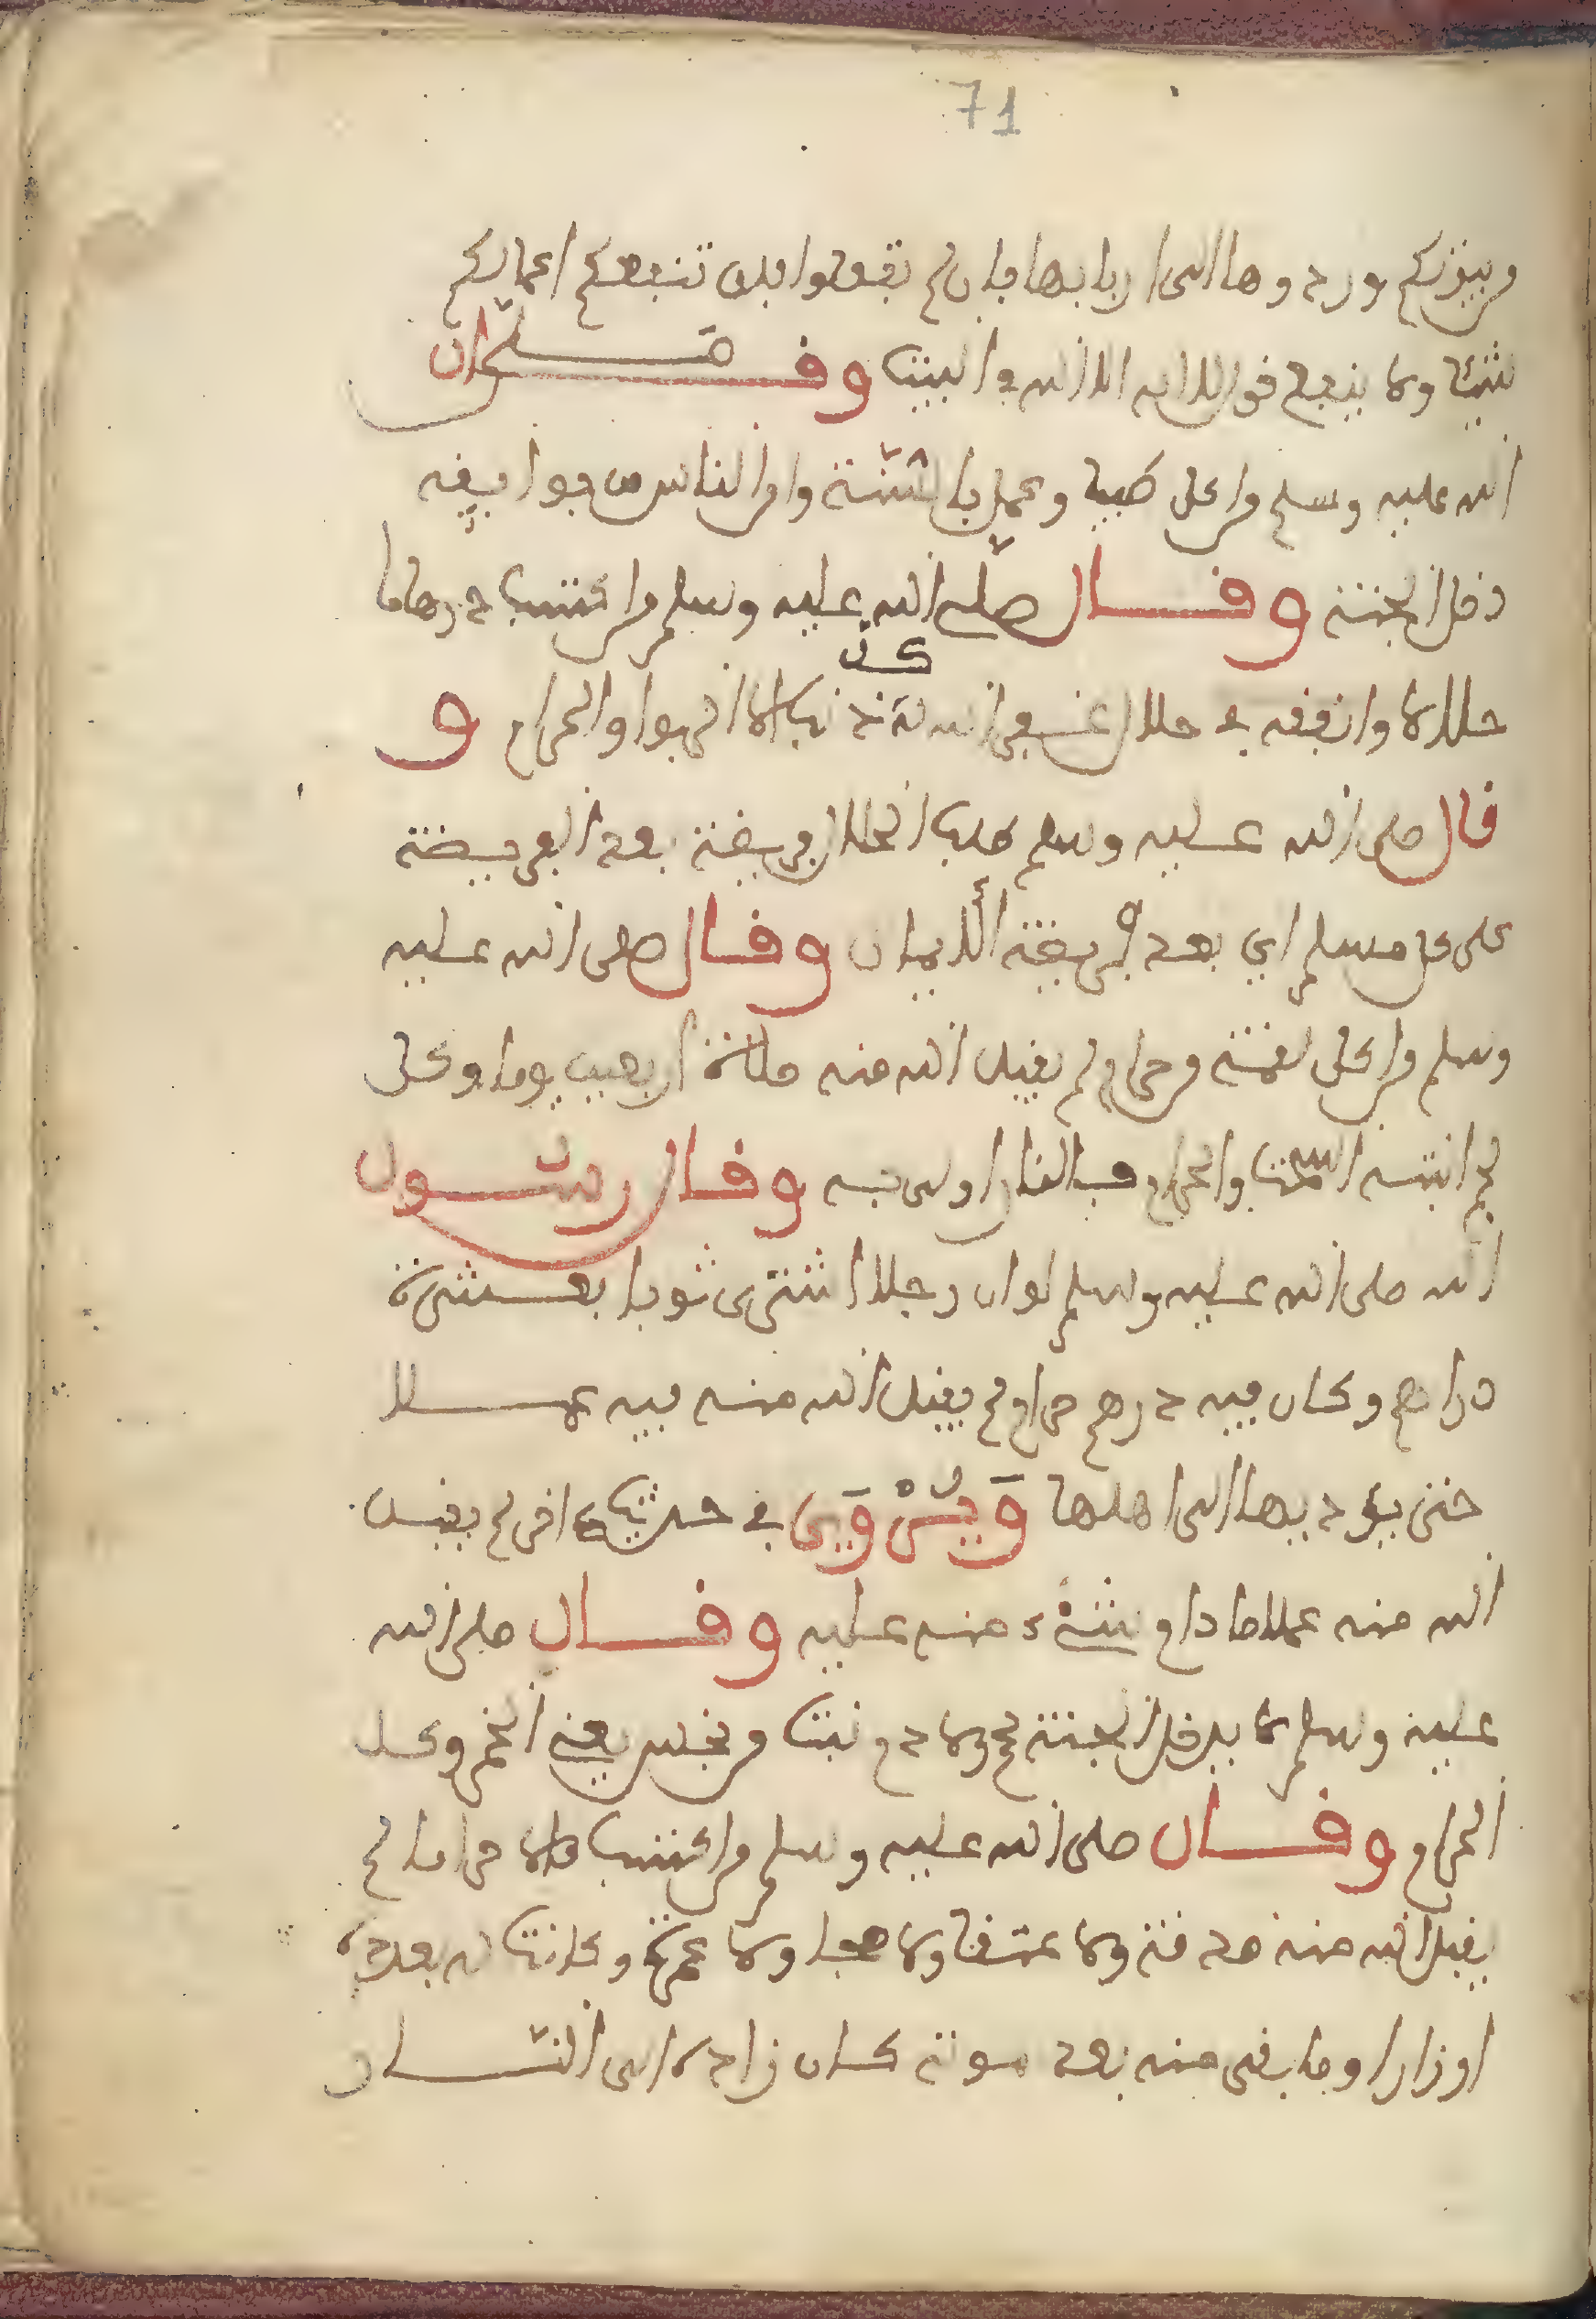 71
من بيوتكم وردوها الى اربابها فان لم تفعلوا فلن تنفعكم اعمالكم
شيئا ولا ينفع قول لا اله الا الله في البيت وقال صلى
الله عليه وسلم من اكل طيبا وعمل بالسنة وامن الناس من بوايقه
دخل الجنة وقال صلى الله عليه وسلم من اكتسب درهاما
حلالا وانفقه في حلال غفر الله له كل ذنب الا الربوا والحرام و
قال صلى الله عليه وسلم طلب الحلال فريضة بعد الفريضة
على كل مسلم اي بعد فريضة الايمان وقال صلى الله عليه
وسلم من اكل لقمة من حرام لم يقبل الله منه صلاة اربعين يوما وكل
لحم انبته السحت والحرام فالنار اولى به وقال رسول
الله صلى الله عليه وسلم لو ان رجلا اشترى ثوبا بعشرة
دراهم وكان فيه درهم حرام لم يقبل الله منه فيه عملا
حتى يؤديها الى اهلها ويروى في حديث اخر لم يقبل
الله منه عملا ما دام شيء منه عليه وقال صلى الله
عليه وسلم لا يدخل الجنة لحم ولا دم نبت من نجس يعني الخمر وكل
الحرام وقال صلى الله عليه وسلم من اكتسب مالا حراما لم
يقبل الله منه صدقة ولا عتقا ولا حجا ولا عمرة وكانت له بعده
اوزارا وما بقى منه بعد موته كان زاده الى النار